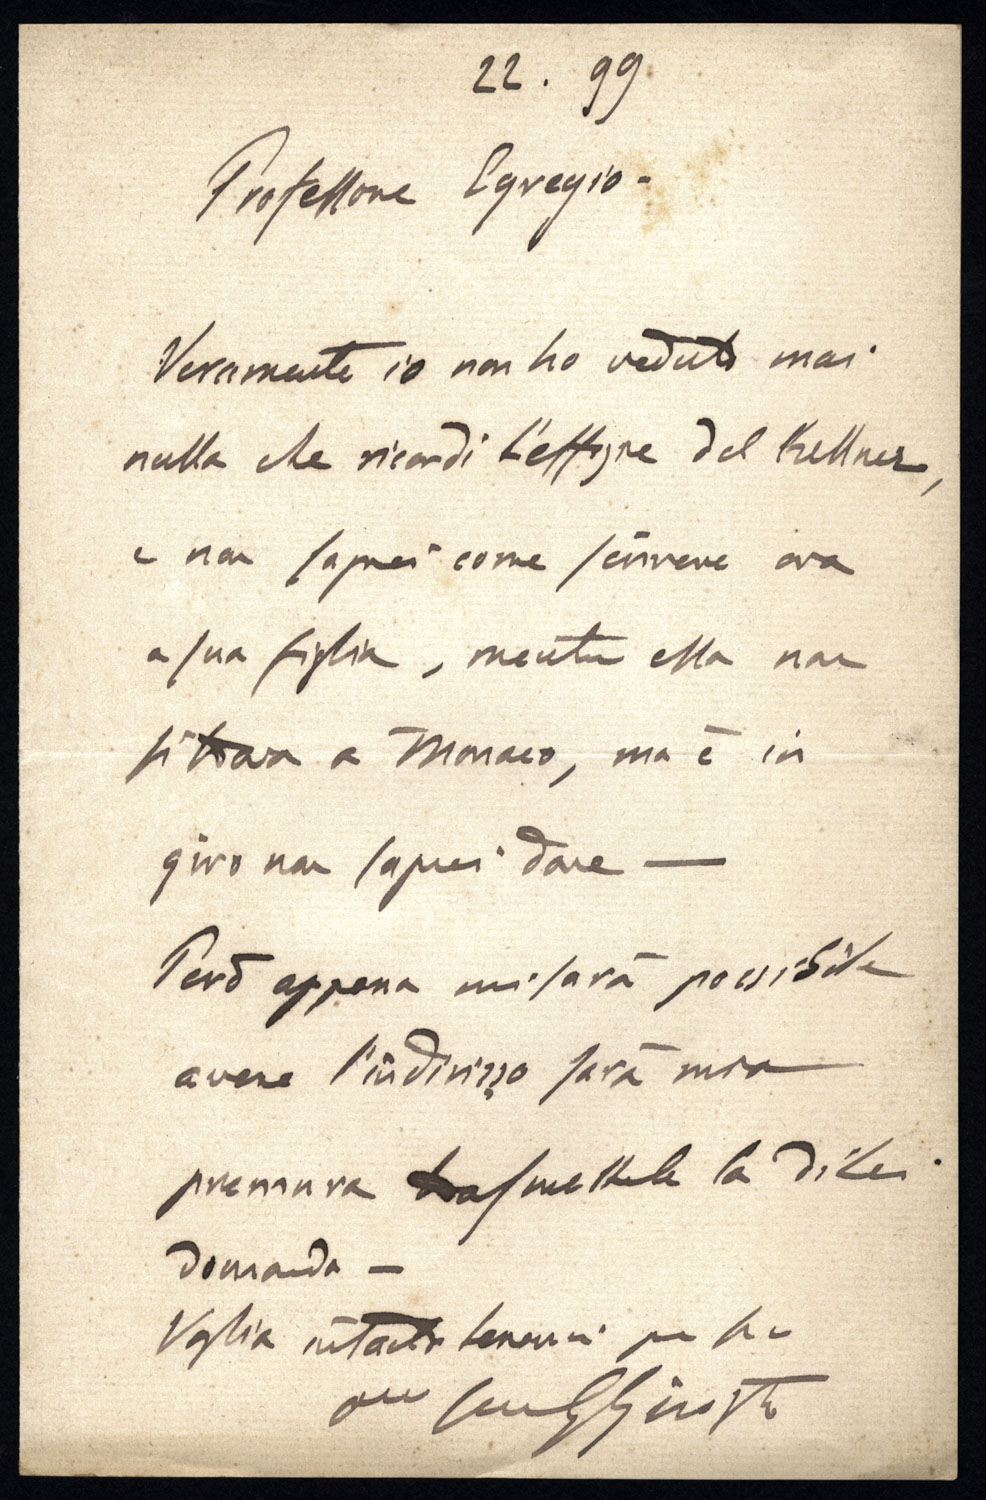 22. 99
Professore Egregio -
Veramente io non ho veduto mai
nulla che ricordi l'effigie del Kellner,
e non saprei come scrivere ora
a sua figlia, mentre ella non
si trova a Monaco, ma è in
giro non saprei dove —
Però appena mi sarà possibile
avere l'indirizzo sarà mia
premura trasmetterle la di lei
domanda —
Voglia intanto tenermi per